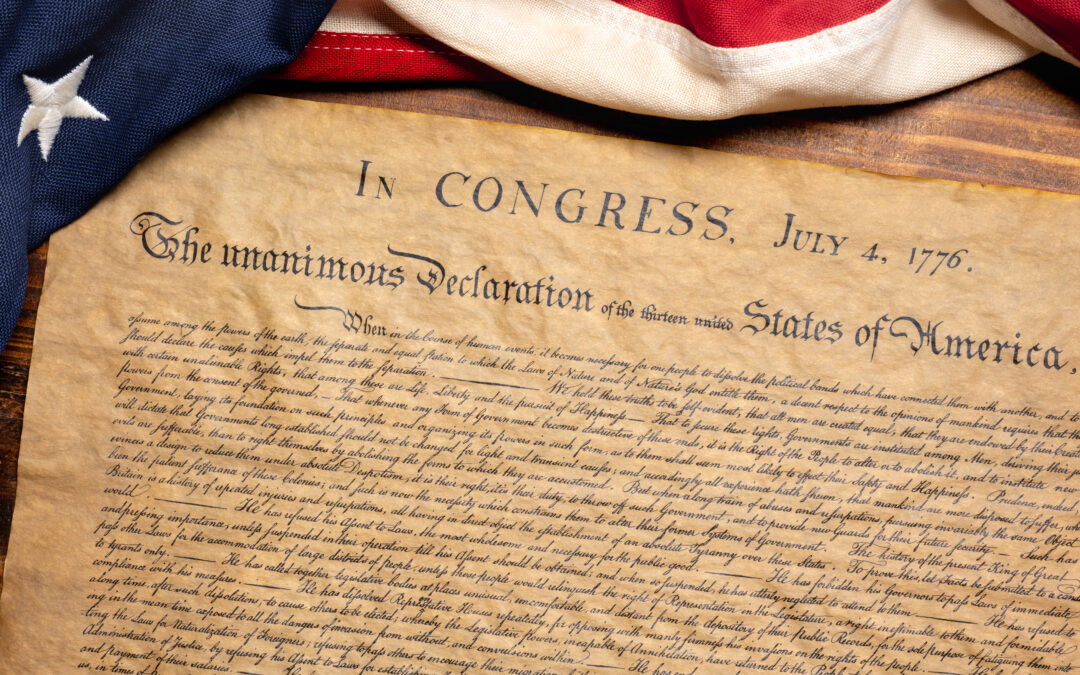 In CONGRESS, July 4, 1776.
The unanimous Declaration of the thirteen united States of America,
When in the Course of human events, it becomes necessary for one people to dissolve the political bands which have connected them with another, and to
assume among the powers of the earth, the separate and equal station to which the Laws of Nature and of Nature's God entitle them, a decent respect to the opinions of mankind requires that
should declare the causes which impel them to the separation. — We hold these truths to be self-evident, that all men are created equal, that they are endowed by their
with certain unalienable Rights, that among these are Life, Liberty and the pursuit of Happiness. — That to secure these rights, Governments are instituted among Men, deriving their
powers from the consent of the governed, — That whenever any Form of Government becomes destructive of these ends, it is the Right of the People to alter or to abolish it, and to institute new
Government, laying its foundation on such principles and organizing its powers in such form, as to them shall seem most likely to effect their Safety and Happiness. Prudence, indeed,
will dictate that Governments long established should not be changed for light and transient causes; and accordingly all experience hath shewn, that mankind are more disposed to suffer,
evils are sufferable, than to right themselves by abolishing the forms to which they are accustomed. But when a long train of abuses and usurpations, pursuing invariably the same Object
evinces a design to reduce them under absolute Despotism, it is their right, it is their duty, to throw off such Government, and to provide new Guards for their future security. — Such has
been the patient sufferance of these Colonies; and such is now the necessity which constrains them to alter their former Systems of Government. The history of the present King of Great
Britain is a history of repeated injuries and usurpations, all having in direct object the establishment of an absolute Tyranny over these States. To prove this, let Facts be submitted to a
world. — He has refused his Assent to Laws, the most wholesome and necessary for the public good. — He has forbidden his Governors to pass Laws of immediate
and pressing importance, unless suspended in their operation till his Assent should be obtained; and when so suspended, he has utterly neglected to attend to them. — He has refused to
pass other Laws for the accommodation of large districts of people, unless those people would relinquish the right of Representation in the Legislature, a right inestimable to them and formidable
to tyrants only. — He has called together legislative bodies at places unusual, uncomfortable, and distant from the depository of their public Records, for the sole purpose of fatiguing them into
compliance with his measures. — He has dissolved Representative Houses repeatedly, for opposing with manly firmness his invasions on the rights of the people. —
along time, after such dissolutions, to cause others to be elected; whereby the Legislative powers, incapable of Annihilation, have returned to the People
ing in the mean time exposed to all the dangers of invasion from without, and convulsions within. — He has
ting the Laws for Naturalization of Foreigners; refusing to pass others to encourage their migration
Administration of Justice, by refusing his Assent to Laws for
and payment of their salaries.
us, in times of